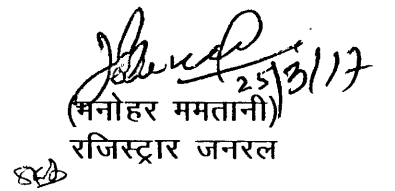 25/3/17
(मनोहर ममतानी)
रजिस्ट्रार जनरल